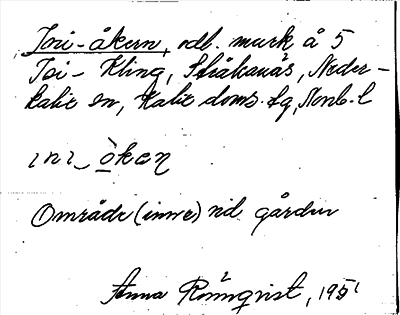 Jori-åkern, odl. mark å 5
Joi- Kling, Stråkanäs, Neder-
kalix sn, Kalix doms. fg, Nonb. l
åken
Område (inne) vid gården
Anna Rönnqvist, 1951